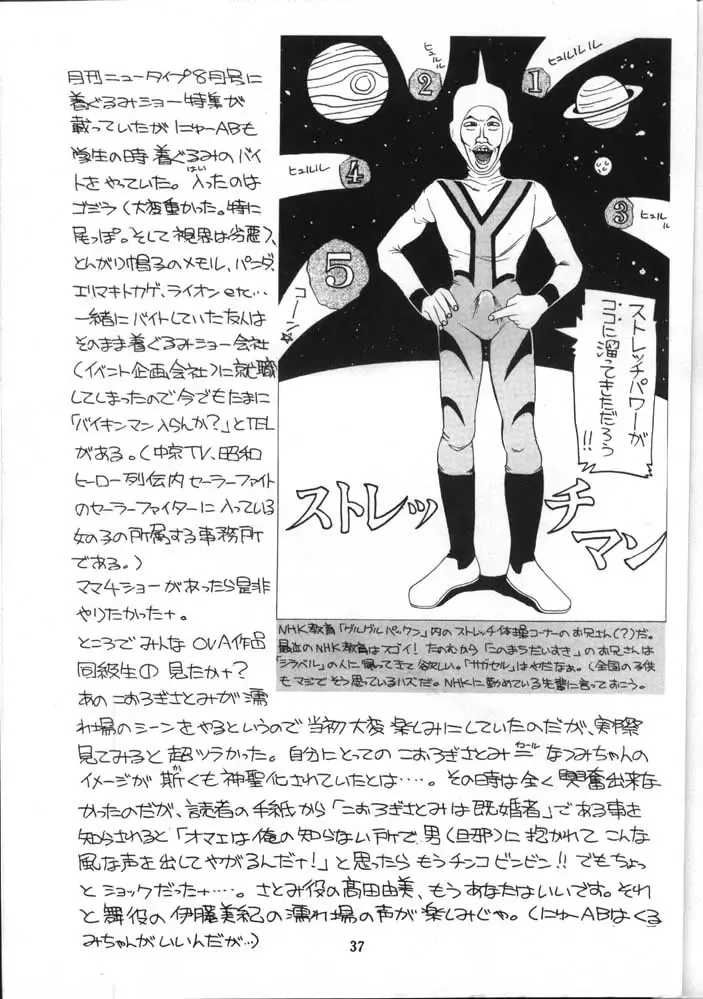 月刊ニュータイプ8月号に
着ぐるみショー特集が
載っていたがにゅーABも
学生の時着ぐるみのバイ
トをやっていた。入ったのは
はい
ゴジラ(大変重かった。特に
尾っぽ。そして視界は劣悪)、
とんがり帽子のメモル、パンダ、
エリマキトカゲ、ライオンetc…
一緒にバイトしていた友人は
そのまま着ぐるみショー会社
(イベント企画会社)に就職
してしまったので今でもたまに
「バイキンマン入らんか?」とTEL
がある。(中京TV、昭和
ヒーロー列伝内セーラーファイト
のセーラーファイターに入っている
女の子の所属する事務所
である。)
ママ4ショーがあったら是非
やりたかったナ。
ところでみんなOVA作品
同級生① 見たかナ?
あのこおろぎさとみが濡
れ場のシーンをやるというので当初大変楽しみにしていたのだが、実際
見てみると超ツラかった。自分にとってのこおろぎさとみ=なつみちゃんの
イメージが斯くも神聖化されていたとは…。その時は全く興奮出来な
か
かったのだが、読者の手紙から「こおろぎさとみは既婚者」である事を
知らされると「オマエは俺の知らない所で男(旦那)に抱かれてこんな
風な声を出してやがるんだナ!」と思ったらもうチンコビンビン!!でもちょっ
とショックだったナ…。さとみ役の高田由美、もうあなたはいいです。それ
と舞役の伊藤美紀の濡れ場の声が楽しみじゃ。(にゅーABはくる
みちゃんがいいんだが…)
ヒュルル
2
ヒュルルル
1
ヒュルル
4
ヒュルル
3
5
コーン☆
ストレッチパワーが
ココに溜ってきただろう
!!
ストレッチ
マン
NHK教育「グルグルパックン」内のストレッチ体操コーナーのお兄さん(?)だ。
最近のNHK教育はスゴイ!たのむから「このまちだいすき」のお兄さんは
「シラベル」の人に帰ってきて欲しい。「サガセル」はやだなぁ。(全国の子供
もマジでそう思っているハズだ。NHKに勤めている先輩に言っておこう。
37